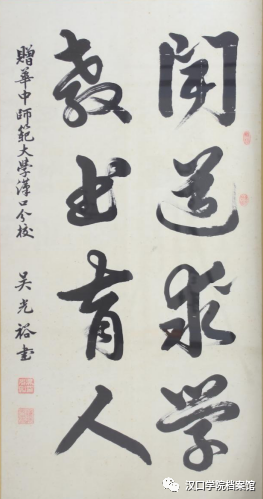 闻道求学
教书育人
赠华中师范大学汉口分校
吴光裕书
汉口学院档案馆